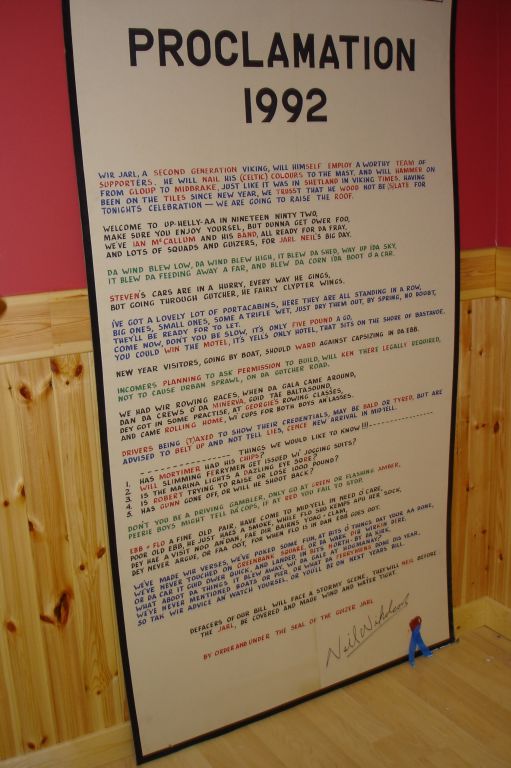 PROCLAMATION
1992
WIR JARL, A SECOND GENERATION VIKING, WILL HIMSELF EMPLOY A WORTHY TEAM OF
SUPPORTERS. HE WILL NAIL HIS (CELTIC) COLOURS TO THE MAST, AND WILL HAMMER ON
FROM GLOUP TO MIDBRAKE, JUST LIKE IT WAS IN SHETLAND IN VIKING TIMES. HAVING
BEEN ON THE TILES SINCE NEW YEAR, WE TRUSST THAT HE WOOD NOT BE (S)LATE FOR
TONIGHTS CELEBRATION — WE ARE GOING TO RAISE THE ROOF.
WELCOME TO UP-HELLY-AA IN NINETEEN NINTY TWO,
MAKE SURE YOU ENJOY YOURSEL, BUT DUNNA GET OWER FOO,
WE'VE IAN McCALLUM AND HIS BAND, ALL READY FOR DA FRAY,
AND LOTS OF SQUADS AND GUIZERS, FOR JARL NEIL'S BIG DAY.
DA WIND BLEW LOW, DA WIND BLEW HIGH, IT BLEW DA SHED, WAY UP IDA SKY,
IT BLEW DA FEEDING AWAY A FAR, AND BLEW DA CORN IDA BOOT O'A CAR.
STEVEN'S CARS ARE IN A HURRY, EVERY WAY HE GINGS,
BUT GOING THROUGH GUTCHER, HE FAIRLY CLYPTER WINGS.
I'VE GOT A LOVELY LOT OF PORTACABINS, HERE THEY ARE ALL STANDING IN A ROW,
BIG ONES, SMALL ONES, SOME A TRIFLE WET, JUST DRY THEM OUT, BY SPRING, NO DOUBT,
THEY'LL BE READY FOR TO LET.
COME NOW, DON'T YOU BE SLOW, IT'S ONLY FIVE POUND A GO,
YOU COULD WIN THE MOTEL, IT'S YELLS ONLY HOTEL, THAT SITS ON THE SHORE OF BASTAVOE.
NEW YEAR VISITORS, GOING BY BOAT, SHOULD WARD AGAINST CAPSIZING IN DA EBB.
INCOMERS PLANNING TO ASK PERMISSION TO BUILD, WILL KEN THERE LEGALLY REQUIRED,
NOT TO CAUSE URBAN SPRAWL, ON DA GUTCHER ROAD.
WE HAD WIR ROWING RACES, WHEN DA GALA CAME AROUND,
DAN DA CREWS O'DA MINERVA, GUID TAE BALTASOUND,
DEY GOT IN SOME PRACTISE, AT GEORGIES ROWING CLASSES,
AND CAME ROLLING HOME, WI CUPS FOR BOTH BOYS AN LASSES.
DRIVERS BEING (T)AXED TO SHOW THEIR CREDENTIALS, MAY BE BALD OR TYRED, BUT ARE
ADVISED TO BELT UP AND NOT TELL LIES, CENCE NEW ARRIVAL IN MID-YELL.
THINGS WE WOULD LIKE TO KNOW !!!
1. HAS MORTIMER HAD HIS CHIPS?
2. WILL SLIMMING FERRYMEN GET ISSUED WI' JOGGING SUITS?
3. IS THE MARINA LIGHTS A DAZZLING EYE SORE?
4. IS ROBERT TRYING TO RAISE OR LOSE 1000 POUND?
5. HAS GUNN GONE OFF, OR WILL HE SHOOT BACK?
DON'T YOU BE A DRIVING GAMBLER, ONLY GO AT GREEN OR FLASHING AMBER,
PEERIE BOYS MIGHT TELL DA COPS, IF AT RED YOU FAIL TO STOP.
EBB + FLO A FINE OLD PAIR, HAVE COME TO MID-YELL IN NEED O'CARE,
POOR OLD EBB, HE JUST HAES A SMOKE, WHILE FLO SHO KEMPS APU HER SOCK,
DEY HAE A VISIT NOO AN DAN, FAE DIR BAIRNS YOAG-CLAN,
DEY NEVER ARGUE, OR FAA OOT, FOR WHEN FLO IS IN DAN EBB GOES OOT.
WE'VE MADE WIR VERSES, WE'VE POKED SOME FUN, AT BITS O THINGS DAT YOUR AA DONE,
WE'VE NEVER TOUCHED ON GREENBANK SQUARE, OR DA MARK DIR WIRKIN DERE,
OR DA CAR IT GUID OWER QUICK, AND LANDED IN BITS NORTH BY DA KIRK,
WHAT ABOOT DA THINGS IT BLEW AWAY, WI' DA GALE AT HOGMANAY?
WE'VE NEVER MENTIONED BOATS OR PIER, OR WHAT DA FERRYMENS DONE DIS YEAR,
SO TAK WIR ADVICE AN WATCH YOURSEL, OR YOU'LL BE ON NEXT YEARS BILL.
DEFACERS OF OUR BILL WILL FACE A STORMY SCENE. THEY WILL NEIL BEFORE
THE JARL, BE COVERED AND MADE WIND AND WATER TIGHT.
BY ORDER AND UNDER THE SEAL OF THE GUIZER JARL
Neil Nicholson